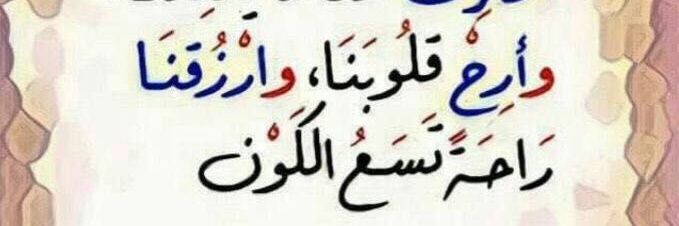 وأرِحْ قلُوبَنَا، وارْزُقنَا
رَاحَةً تَسَعُ الكَوْن